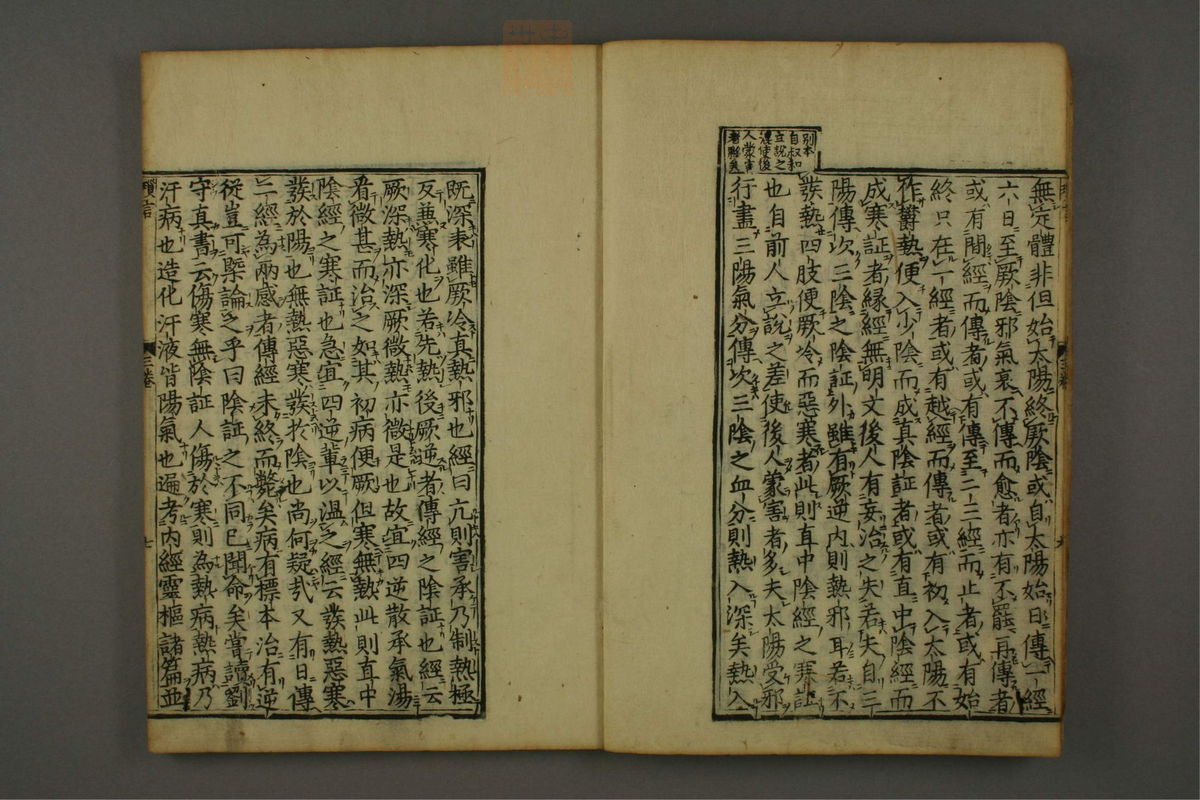 無定體非但始太陽終厥陰或自太陽始日傳一經
六日至厥陰邪氣衰不傳而愈者亦有不罷再傳者
或有間經而傳者或有傳至二三經而止者或有始
終只在一經者或有越經而傳者或有初入太陽不
作欝熱便入少陰而成真陰証者或有直中陰經而
成寒証者緣經無明文後人有妄治之失若夫自三
陽傳次三陰之陰証外雖有厥逆内則熱邪耳若不
發熱四肢便厥冷而惡寒者此則直中陰經之寒証
也自前人立說之差使後人蒙害者多夫太陽受邪
行盡三陽氣分傳次三陰之血分則熱入深矣熱入
別本
自叔和
立說之
後
人蒙害
者
既深表雖厥冷真熱邪也經曰亢則害承乃制熱極
反兼寒化也若先熱後厥逆者傳經之陰証也經云
厥深熱亦深厥微熱亦微是也故宜四逆散承氣湯
看微甚而治之如其初病便厥但寒無熱此則直中
陰經之寒証也急宜四逆輩以温之經云發熱惡寒
發於陽也無熱惡寒發於陰也尚何疑哉又有日傳
二經為兩感者傳經未終而斃矣病有標本治有逆
從豈可槩論之乎曰陰証之不同已聞命矣嘗讀劉
守真書云傷寒無陰証人傷於寒則為熱病熱病乃
汗病也造化汗液皆陽氣也遍考内經靈樞諸篇並
三卷 七